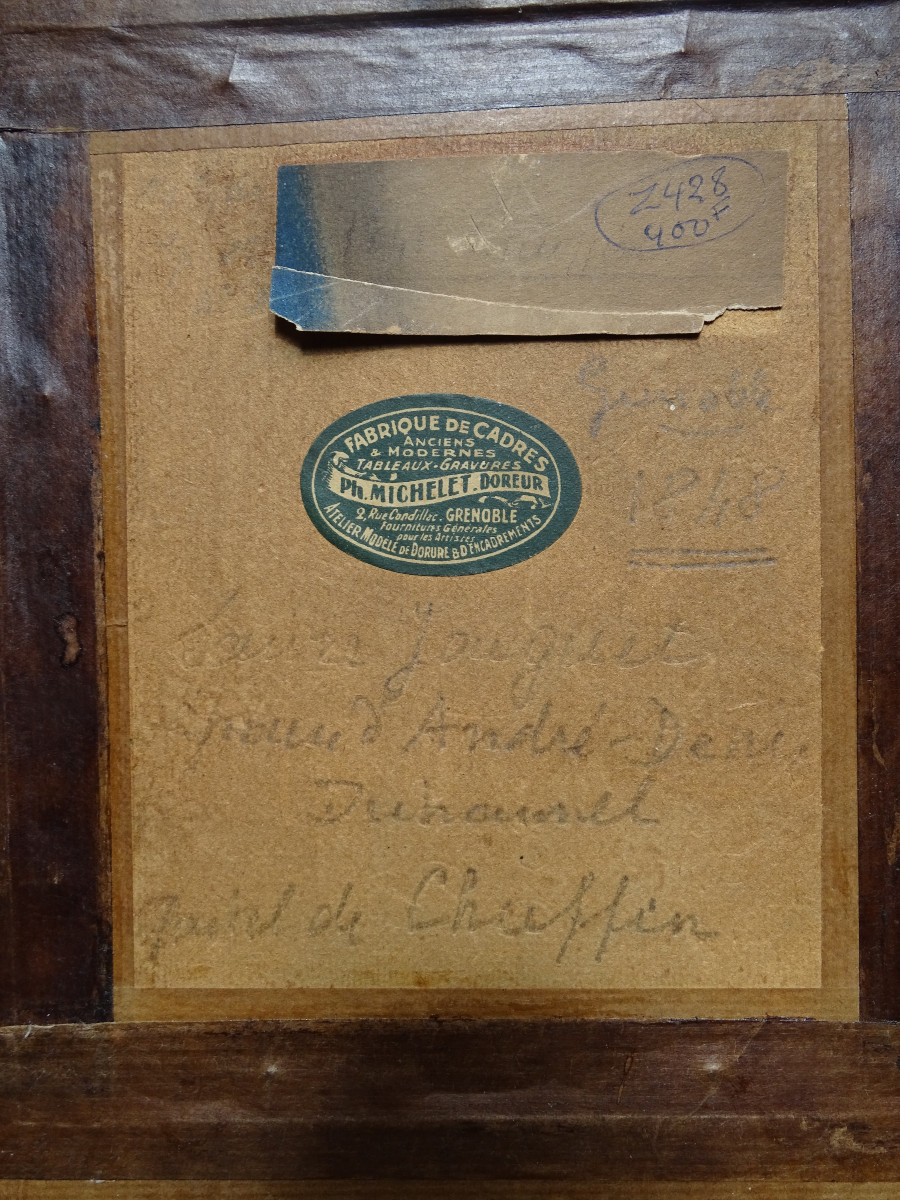 Z428
400F
Grenoble
1848
FABRIQUE DE CADRES
ANCIENS
& MODERNES
TABLEAUX-GRAVURES
Ph. MICHELET. DOREUR
2, Rue Condillac. GRENOBLE
Fournitures Générales
pour les Artistes
ATELIER MODÈLE DE DORURE & D'ENCADREMENTS
Jouguet
André-Denis
de Chuffin